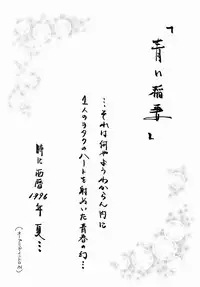 『青い稲妻』
…それは何やようわからん内に
1人のヲタクのハートを射ぬいた青春の幻…
時に西暦
1996年 夏…